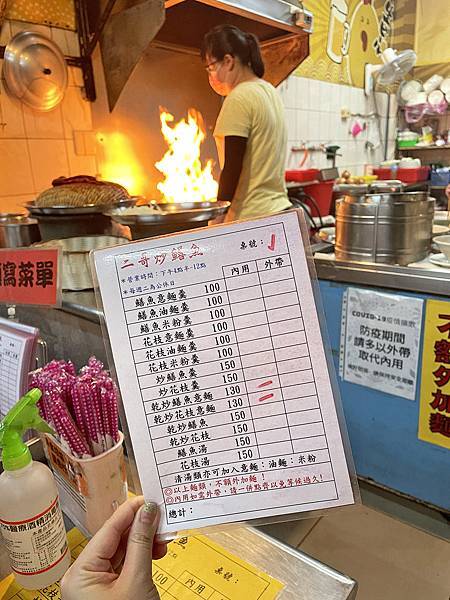 二哥炒鱔魚 桌號：
＊營業時間：下午4點半-12點
＊每週二為公休日
內用 外帶
鱔魚意麵羹 100
鱔魚油麵羹 100
鱔魚米粉羹 100
花枝意麵羹 100
花枝油麵羹 100
花枝米粉羹 100
炒鱔魚羹 150
炒花枝羹 150
乾炒鱔魚意麵 130
乾炒花枝意麵 130
乾炒鱔魚 150
乾炒花枝 150
鱔魚湯 150
花枝湯 150
清湯類亦可加入意麵：油麵：米粉
◎以上麵類，不額外加麵！
◎內用如需外帶，請一併點齊以免等候過久！
總計：
窩菜單
COVID-19疫情擴散
防疫期間
請多以外帶
取代內用
不額外加麵
75%醫療酒精
魚
桌號：
內用